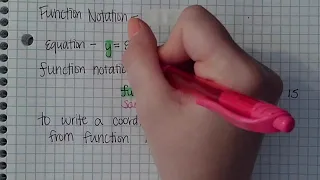 Function Notation -
Equation - y =
function notatio
fu
Sa
15
to write a coord
from function